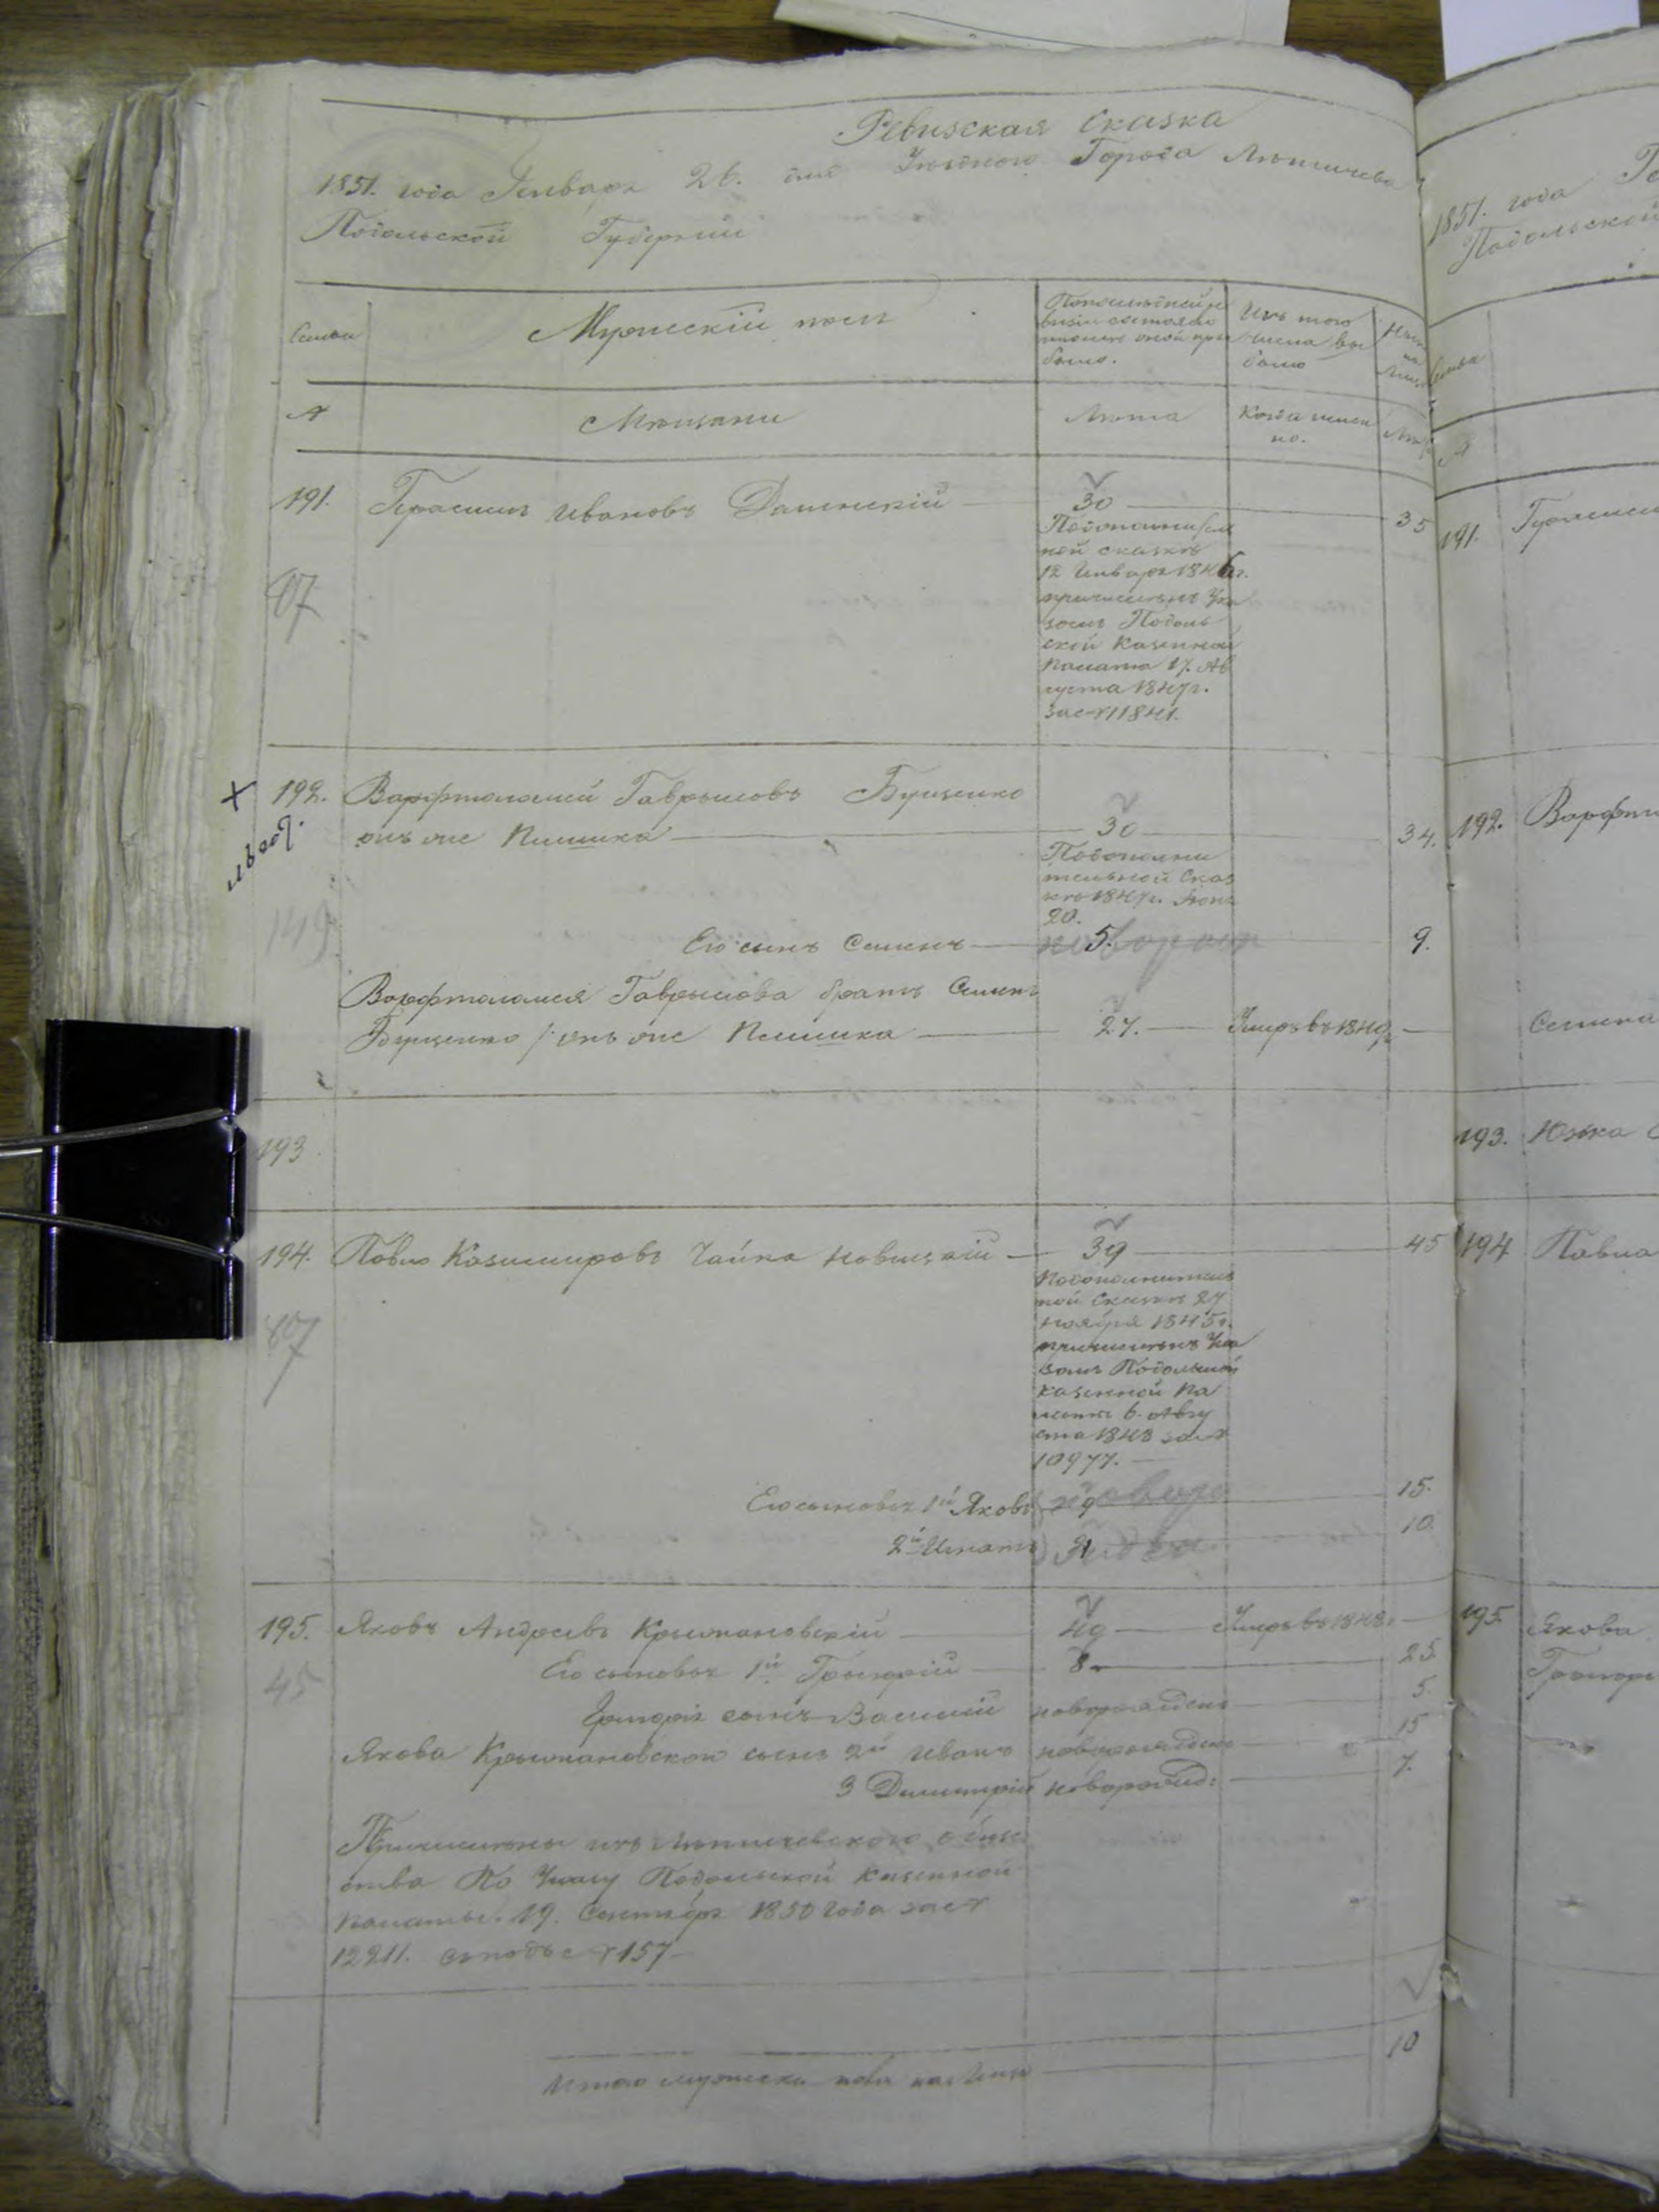 Ревизская Сказка
1851. года Генваря 26. дня Уезднаго Города Летичева
Подольской Губернии
Семьи
Мужескій полъ
По последней ре
визіи состояло
и после оной при
было.
Изъ того
числа вы
было
№
Мещани
Лета
Когда имен
но.
Лета
191. Герасимъ Ивановъ 30 35
По дополнитель
ной сказке
12 Января 1846г.
причисленъ Ука
зомъ Подоль
ской Казенной
Палаты 17. Ав
густа 1847г.
за № 11841.
87
192. Варфтоломей Гаврыловъ Бущенко
онъ же Пишика 30 34.
По дополни
тельной Сказ
ке 1847г.
20.
149
Его сынъ Семенъ 5. 9.
Варфтоломея Гаврылова братъ Семенъ
Бущенко /: онъ же Пишика 27. Умеръ въ 1849
193
194. Павло Казимировъ Чайка Новицкій 39 45
По дополнитель
ной Сказке 27
Ноября 1845г.
причисленъ Ука
зомъ Подольской
Казенной Па
латы 6. Авгу
ста 1848 за №
10977.
Его сыновья 1й Яковъ 9 15.
2й Игнатъ 10.
195. Яковъ Андреевъ Крыжановскій 49 Умеръ въ 1848.
45
Его сыновья 1й Григорій 8 25
Григорія сынъ Василій новорожденъ 5.
Якова Крыжановского сынъ 2й Иванъ новорожденъ 15
3 Димитрій новорожд: 7.
Причислены изъ Летичевского обще
ства По Указу Подольской Казенной
Палаты. 19. Сентября 1850 года за №
12211. № 157
Итого мужеска пола на лицо 10
1851. года
Подольской
191.
192. Варфто
Семена
193. Юзька
194 Павла
195. Якова
Григорі